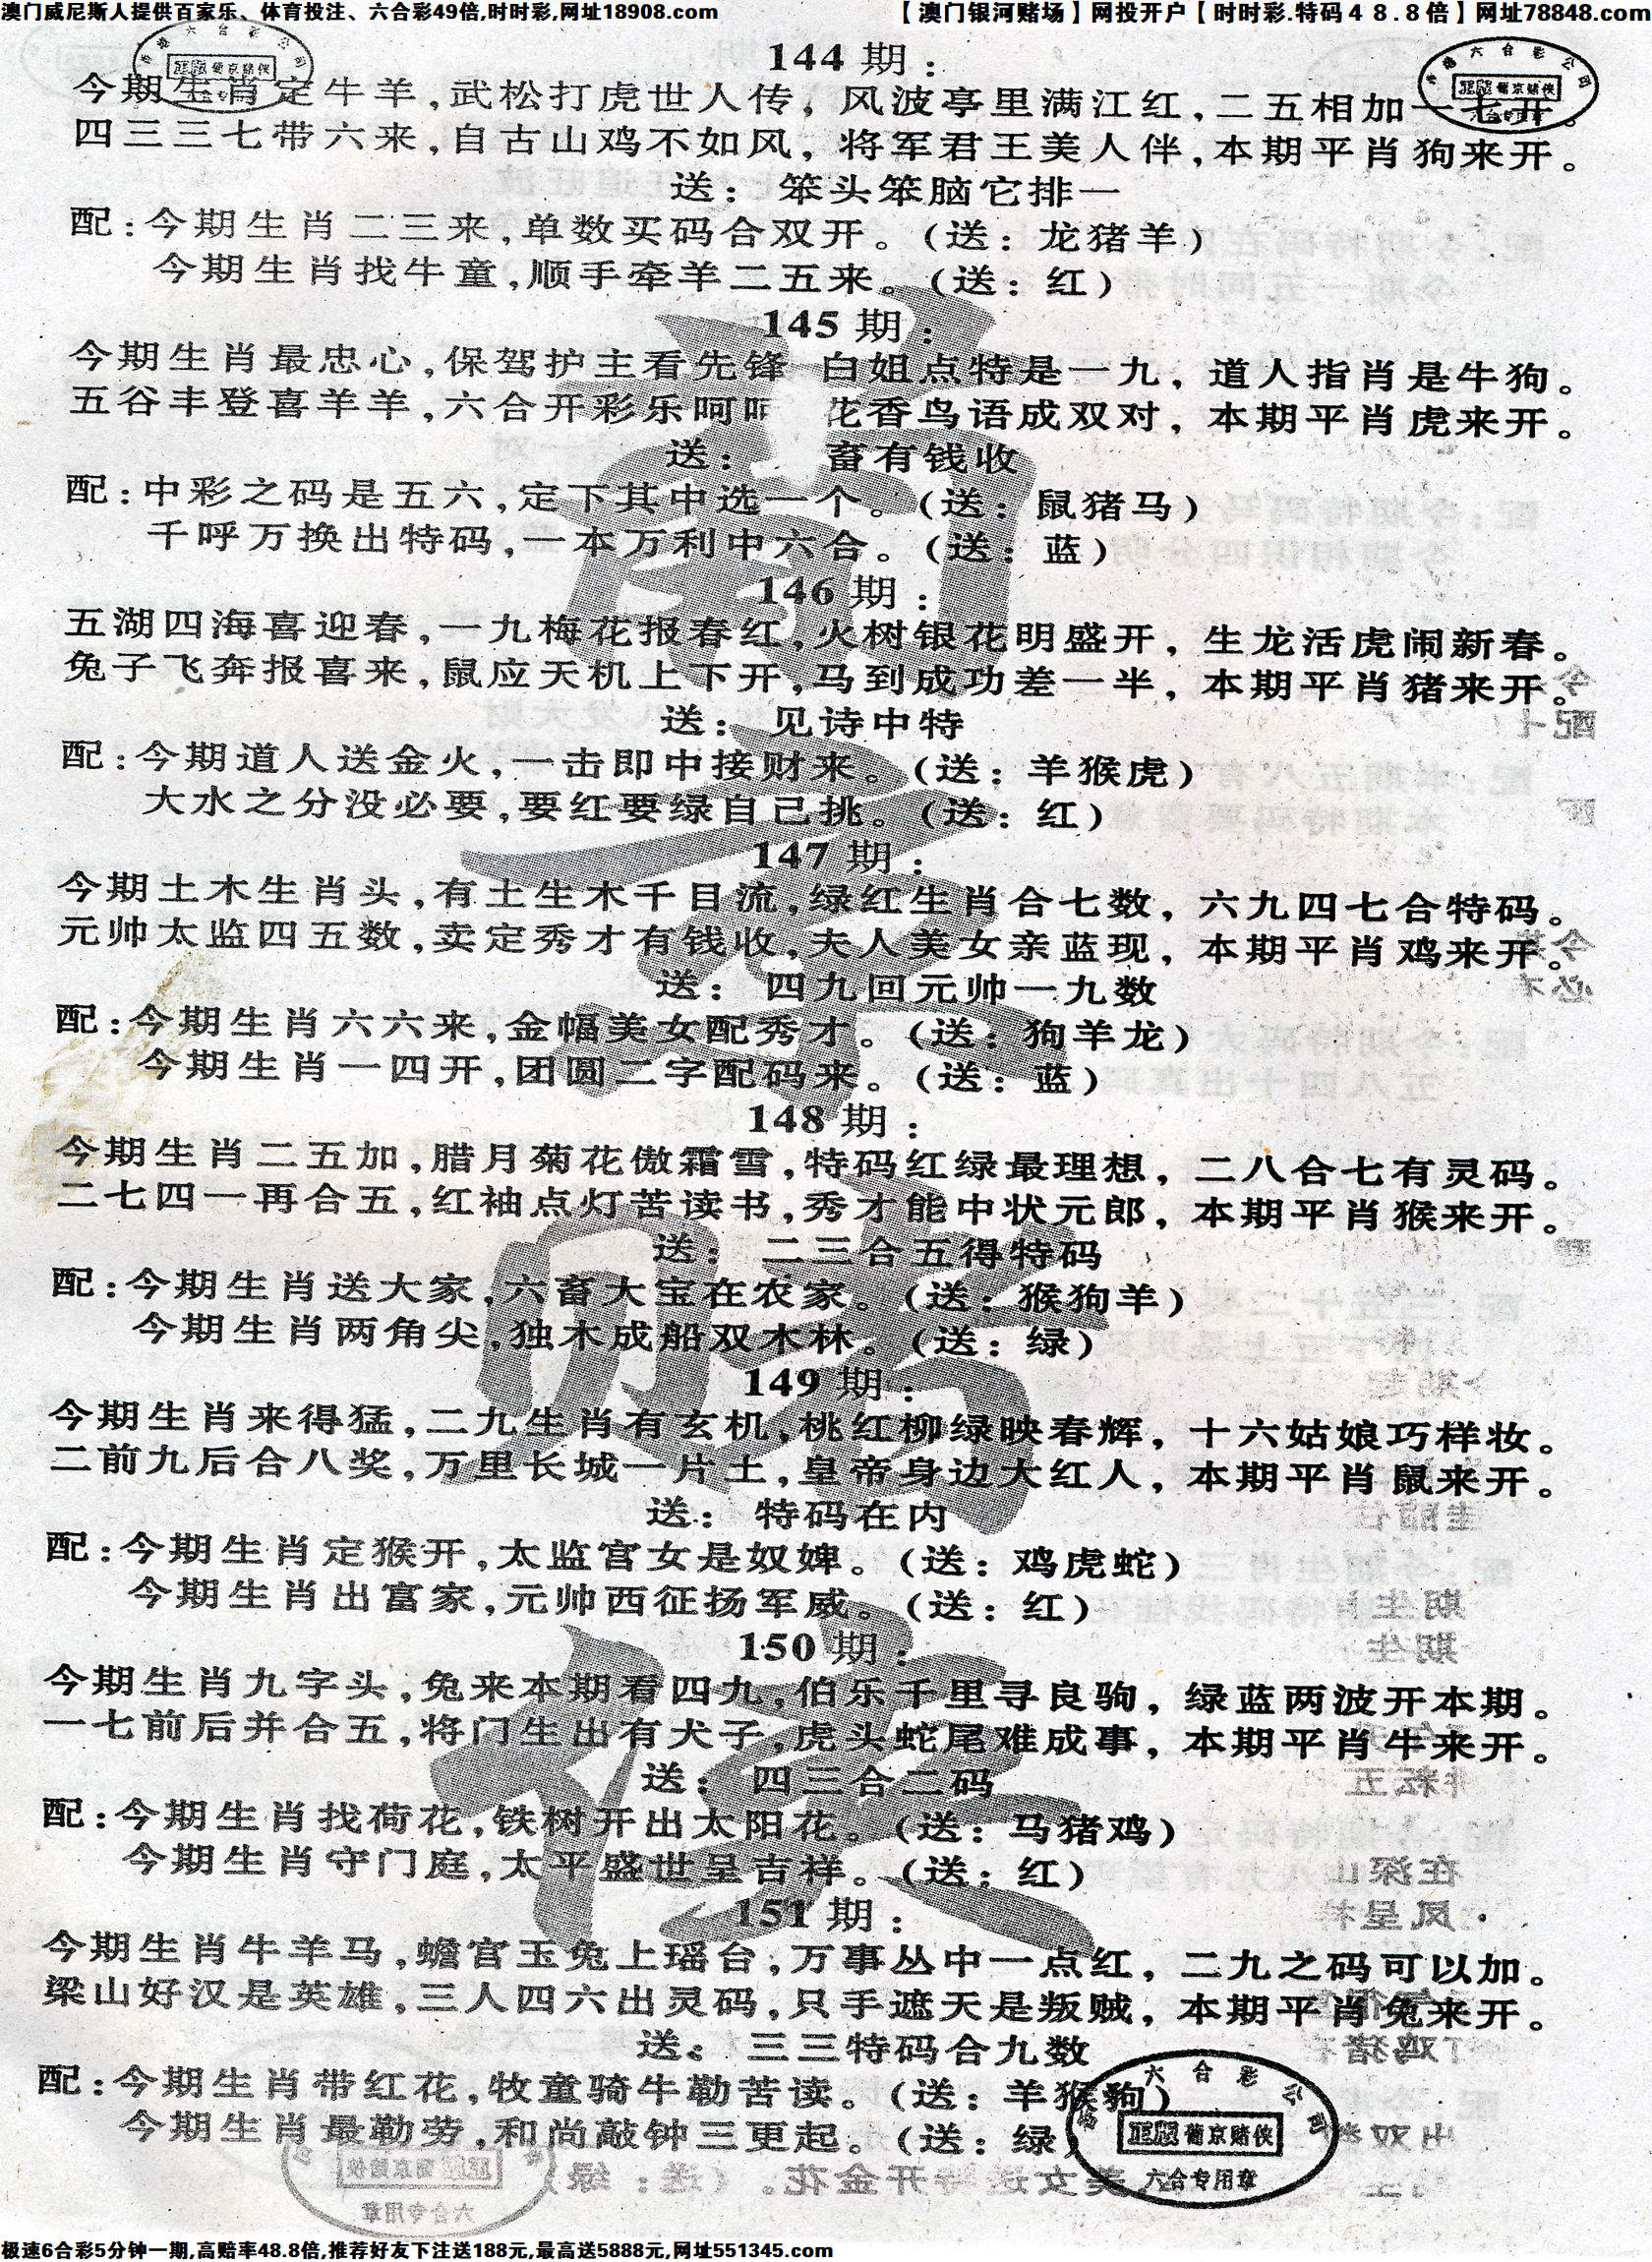 澳门威尼斯人提供百家乐、体育投注、六合彩49倍,时时彩,网址18908.com
【澳门银河赌场】网投开户【时时彩.特码48.8倍】网址78848.com
六合彩公司
正版 葡京赌侠
144期：
今期生肖定牛羊,武松打虎世人传,风波亭里满江红,二五相加一七开。
四三三七带六来,自古山鸡不如风,将军君王美人伴,本期平肖狗来开。
送：笨头笨脑它排一
配:今期生肖二三来,单数买码合双开。(送：龙猪羊)
今期生肖找牛童,顺手牵羊二五来。(送：红)
145期：
今期生肖最忠心,保驾护主看先锋 白姐点特是一九,道人指肖是牛狗。
五谷丰登喜羊羊,六合开彩乐呵呵 花香鸟语成双对,本期平肖虎来开。
送： 畜有钱收
配:中彩之码是五六,定下其中选一个。(送：鼠猪马)
千呼万换出特码,一本万利中六合。(送：蓝)
146期：
五湖四海喜迎春,一九梅花报春红,火树银花明盛开,生龙活虎闹新春。
兔子飞奔报喜来,鼠应天机上下开,马到成功差一半,本期平肖猪来开。
送：见诗中特
配:今期道人送金火,一击即中接财来。(送：羊猴虎)
大水之分没必要,要红要绿自己挑。(送：红)
147期：
今期土木生肖头,有土生木千目流,绿红生肖合七数,六九四七合特码。
元帅太监四五数,卖定秀才有钱收,夫人美女亲蓝现,本期平肖鸡来开。
送：四九回元帅一九数
配:今期生肖六六来,金幅美女配秀才。(送：狗羊龙)
今期生肖一四开,团圆二字配码来。(送：蓝)
148期：
今期生肖二五加,腊月菊花傲霜雪,特码红绿最理想,二八合七有灵码。
二七四一再合五,红袖点灯苦读书,秀才能中状元郎,本期平肖猴来开。
送：二三合五得特码
配:今期生肖送大家,六畜大宝在农家。(送：猴狗羊)
今期生肖两角尖,独木成船双木林。(送：绿)
149期：
今期生肖来得猛,二九生肖有玄机,桃红柳绿映春辉,十六姑娘巧样妆。
二前九后合八奖,万里长城一片土,皇帝身边大红人,本期平肖鼠来开。
送：特码在内
配:今期生肖定猴开,太监官女是奴婢。(送：鸡虎蛇)
今期生肖出富家,元帅西征扬军威。(送：红)
150期：
今期生肖九字头,兔来本期看四九,伯乐千里寻良驹,绿蓝两波开本期。
一七前后并合五,将门生出有犬子,虎头蛇尾难成事,本期平肖牛来开。
送：四三合二码
配:今期生肖找荷花,铁树开出太阳花。(送：马猪鸡)
今期生肖守门庭,太平盛世呈吉祥。(送：红)
151期：
今期生肖牛羊马,蟾宫玉兔上瑶台,万事丛中一点红,二九之码可以加。
梁山好汉是英雄,三人四六出灵码,只手遮天是叛贼,本期平肖兔来开。
送：三三特码合九数
配:今期生肖带红花,牧童骑牛勒苦读。(送：羊猴狗)
今期生肖最勒劳,和尚敲钟三更起。(送：绿)
六合彩公司
正版 葡京赌侠
六合专用章
极速6合彩5分钟一期,高赔率48.8倍,推荐好友下注送188元,最高送5888元,网址551345.com